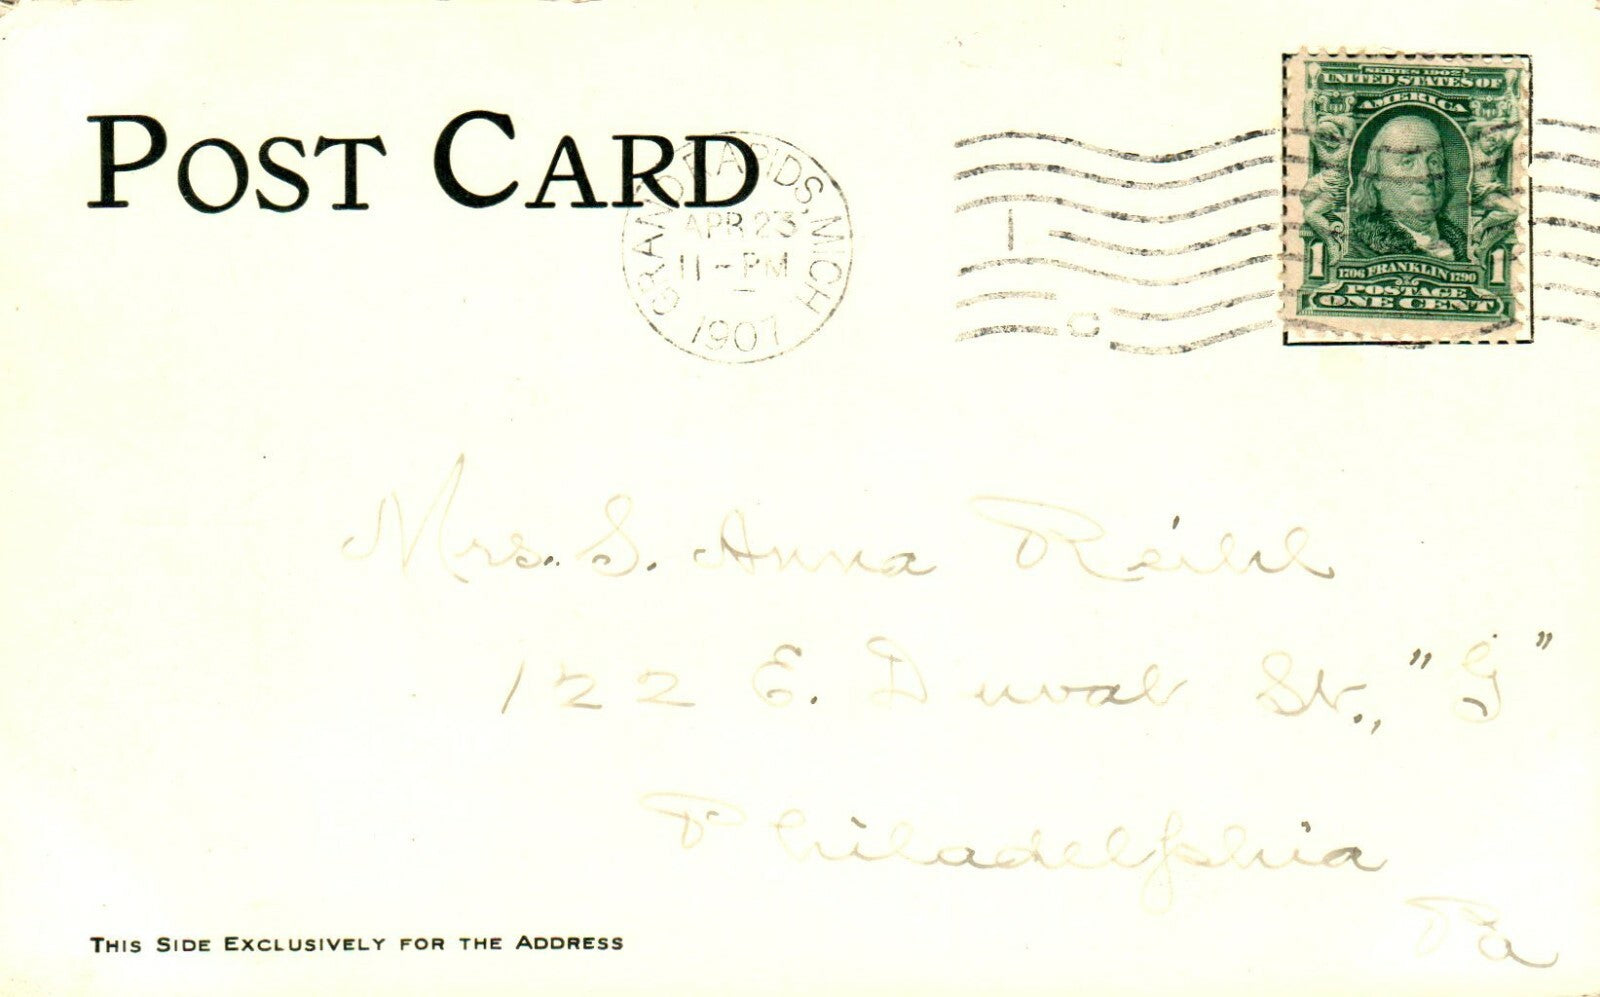 POST CARD
GRAND RAPIDS, MICH
APR 23
11-PM
1907
1
C
SERIES 1902
UNITED STATES OF
AMERICA
1 1706 FRANKLIN 1790 1
POSTAGE
ONE CENT
Mrs. S. Anna Reihl
122 E. Duval St., "G"
Philadelphia
Pa
THIS SIDE EXCLUSIVELY FOR THE ADDRESS